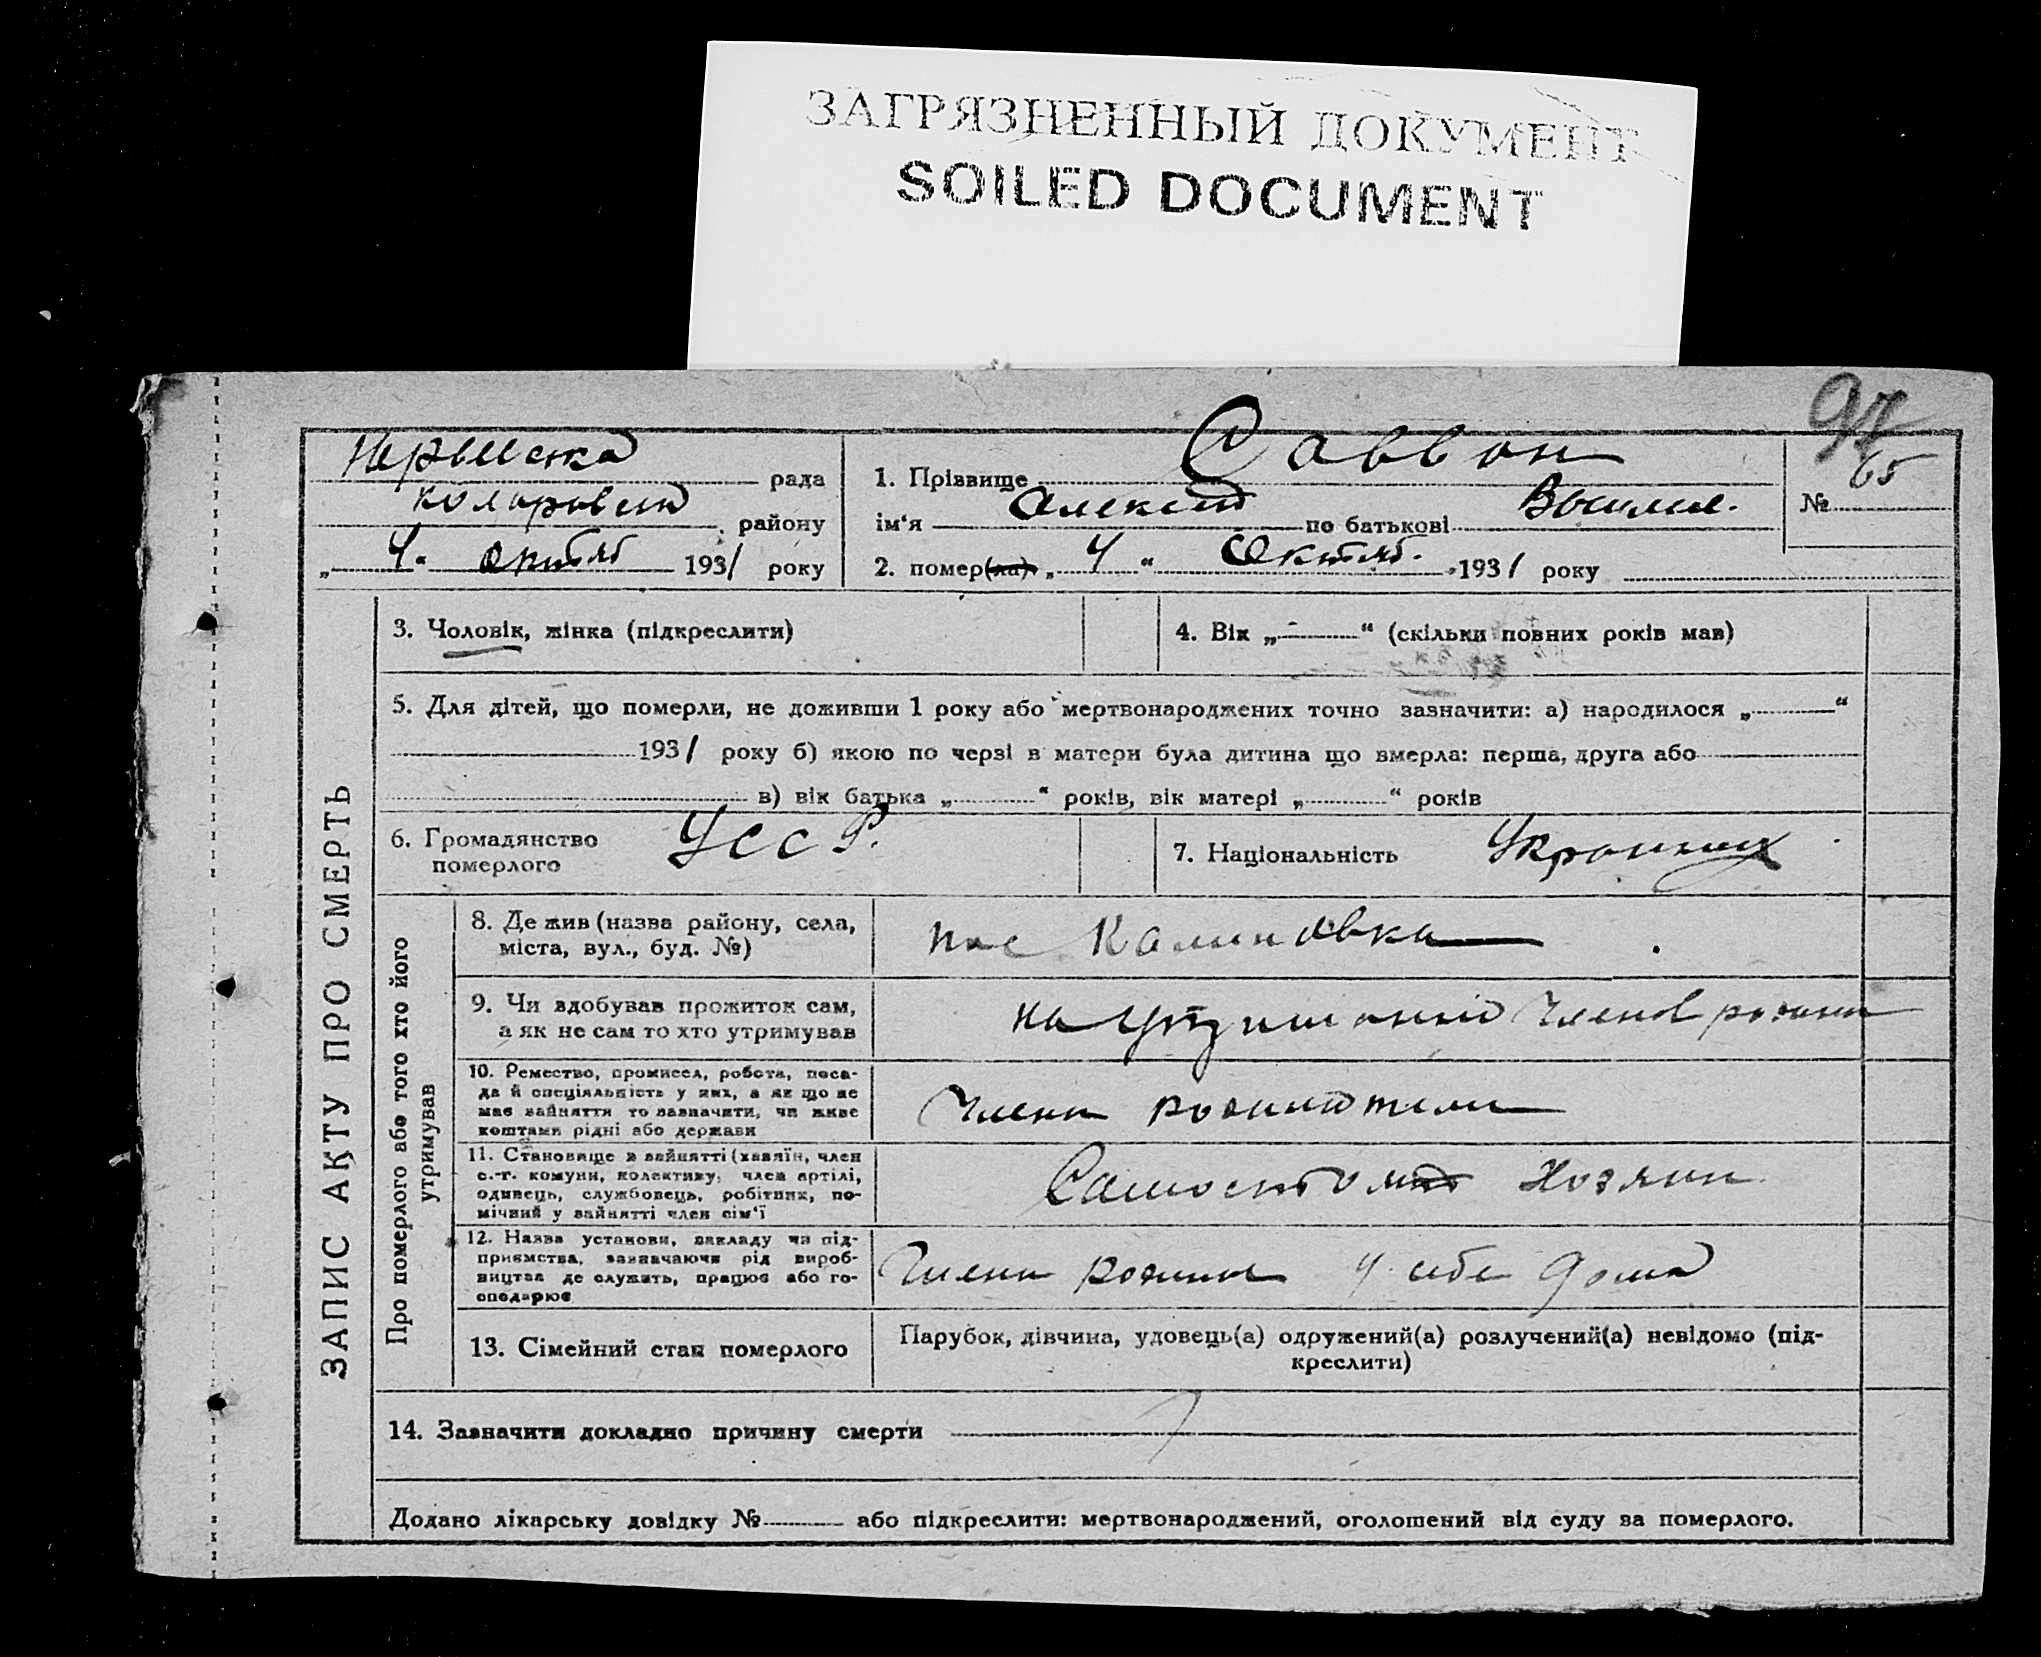 ЗАГРЯЗНЕННЫЙ ДОКУМЕНТ
SOILED DOCUMENT
97
рада
району
„ 4 “ октяб 1931 року
1. Прізвище Саввон
ім‘я Алексей по батькові Васильев.
№ 65
2. помер(ла) „ 4 “ Октяб. 1931 року
ЗАПИС АКТУ ПРО СМЕРТЬ
3. Чоловік, жінка (підкреслити)
4. Вік „ - “ (скільки повних років мав)
5. Для дітей, що померли, не доживши 1 року або мертвонароджених точно зазначити: а) народилося „ “
1931 року б) якою по черзі в матери була дитина що вмерла: перша, друга або
в) вік батька „ “ років, вік матері „ “ років
6. Громадянство
померлого
УССР.
7. Національність
Про померлого або того хто його
утримував
8. Де жив (назва району, села,
міста, вул., буд. №)
пос Калиновка
9. Чи здобував прожиток сам,
а як не сам то хто утримував
на
10. Ремество, промисел, робота, поса-
да й спеціяльність у них, а як що не
має зайняття то зазначити, чи живе
коштами рідні або держави
11. Становище в зайнятті (хазяїн, член
с.-г. комуни, колективу, член артілі,
одинець, службовець, робітник, по-
мічний у зайнятті член сім‘ї
Хозяин
12. Назва установи, закладу чи під-
приємства, зазначаючи рід вироб-
ництва де служить, працює або го-
сподарює
у себе дома
13. Сімейний стан померлого
Парубок, дівчина, удовець(а) одружений(а) розлучений(а) невідомо (під-
креслити)
14. Зазначити докладно причину смерти
Додано лікарську довідку № або підкреслити: мертвонароджений, оголошений від суду за померлого.